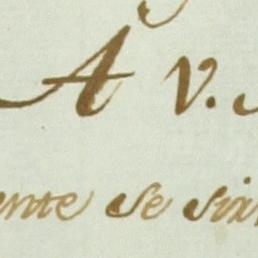 A V.
ente se six